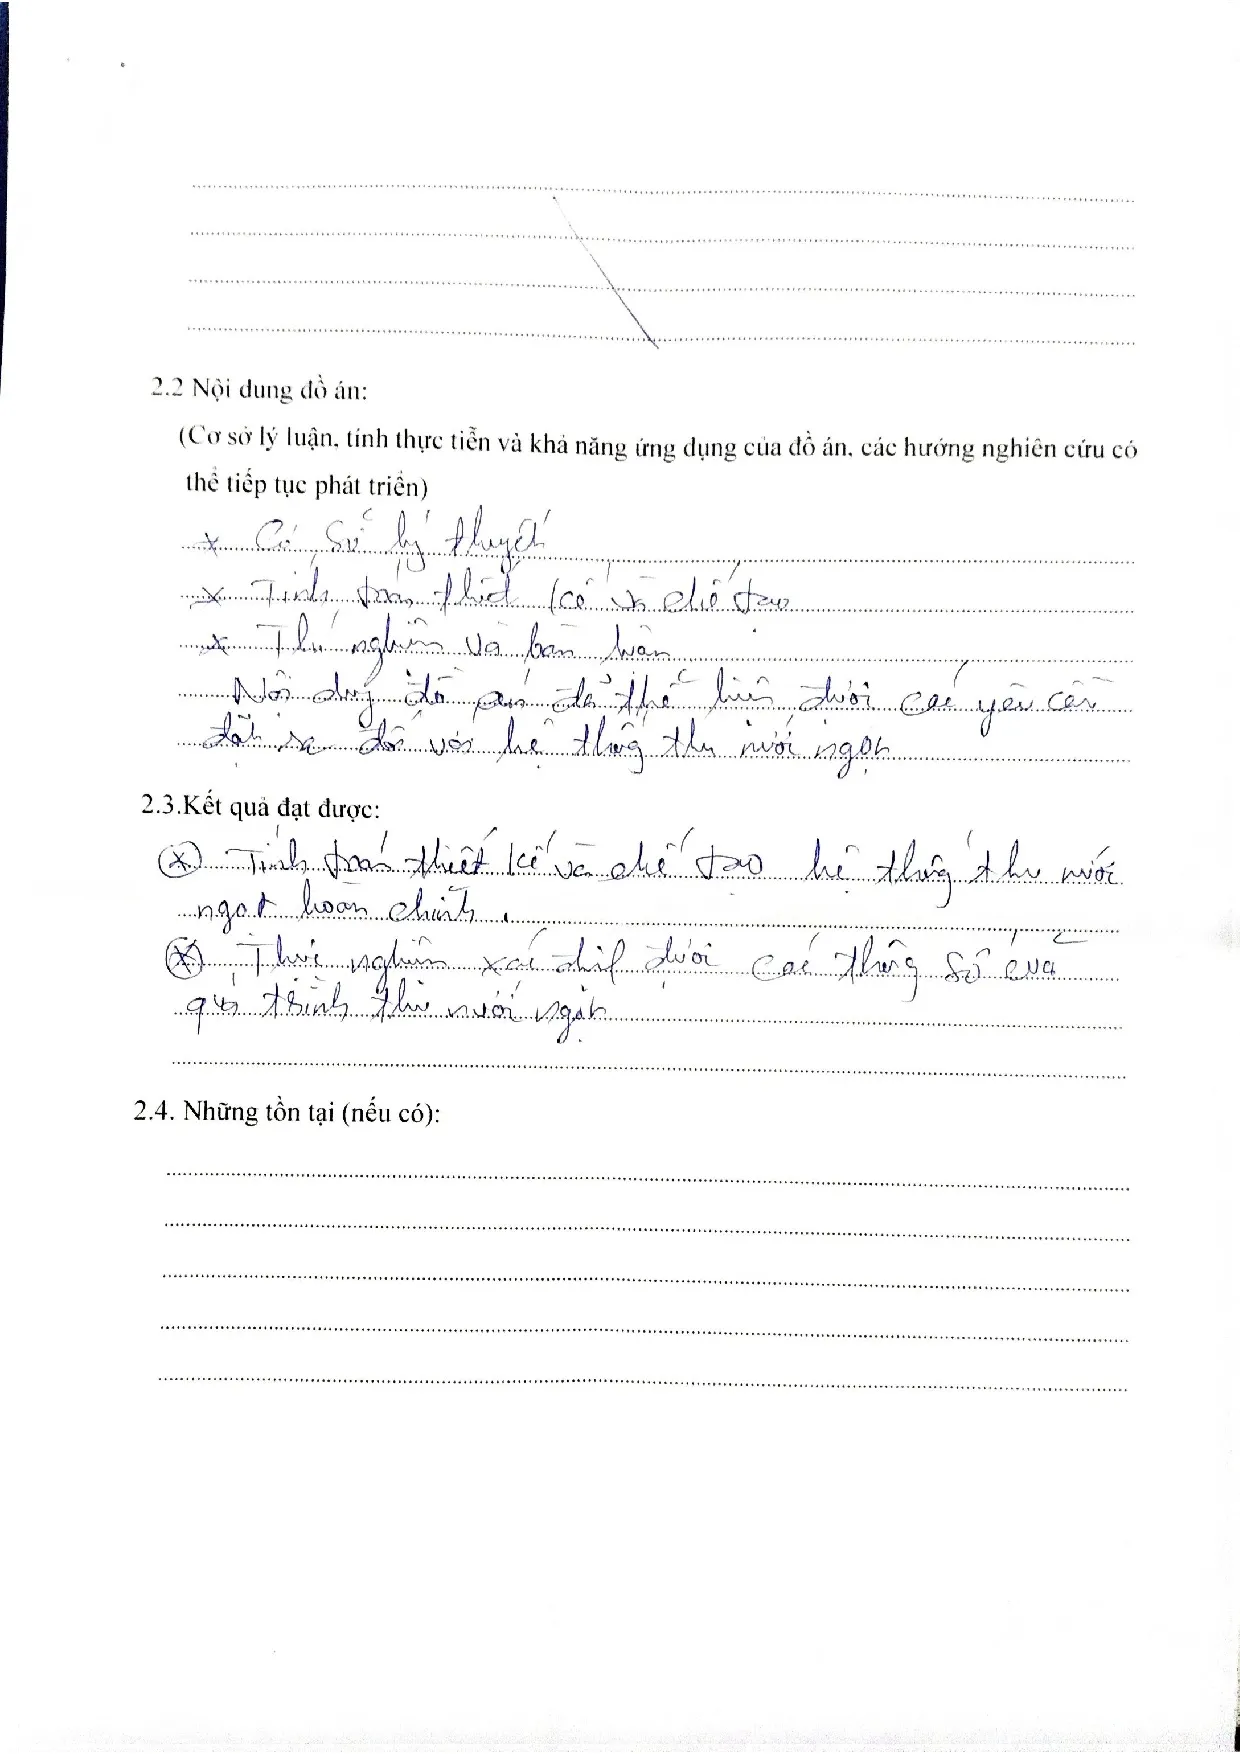 2.2 Nội dung đồ án:
(Cơ sở lý luận, tính thực tiễn và khả năng ứng dụng của đồ án, các hướng nghiên cứu có
thể tiếp tục phát triển)
x Cơ sở lý thuyết
x Tính toán thiết kế và chế tạo
x Thí nghiệm và bàn luận
Nội dung đồ án đã thể hiện được các yêu cầu
đặt ra đối với hệ thống thu nước ngọt
2.3.Kết quả đạt được:
x Tính toán thiết kế và chế tạo hệ thống thu nước
ngọt hoàn chỉnh.
x Thực nghiệm xác định được các thông số của
quá trình thu nước ngọt
2.4. Những tồn tại (nếu có):